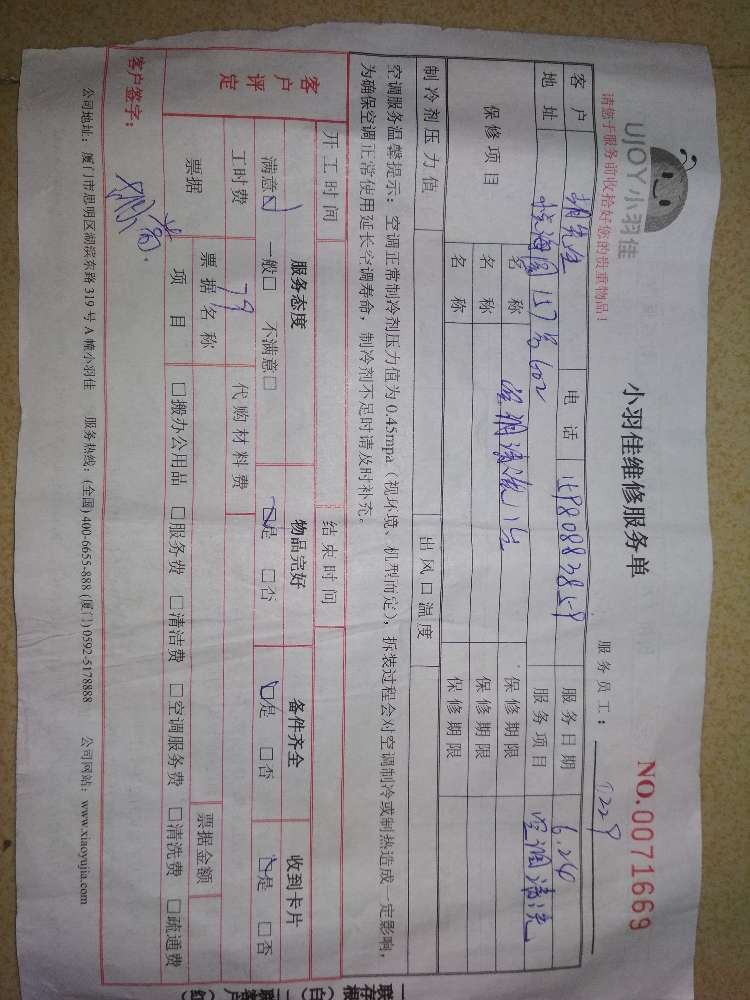 UJOY小羽佳
小羽佳维修服务单
NO.0071669
请您于服务前收拾好您的贵重物品！
服务员工：
客户 胡先生 电话 15880883859 服务日期 6.24
地址 悦海园157号602 服务项目 空调清洗
保修项目 名称 空调清洗1台 保修期限
名称 保修期限
名称 保修期限
制冷剂压力值 出风口温度
空调服务温馨提示：空调正常制冷剂压力值为0.45mpa（视环境、机型而定），拆装过程会对空调制冷或制热造成一定影响，
为确保空调正常使用延长空调寿命，制冷剂不足时请及时补充。
开工时间 结束时间
客户评定 服务态度 物品完好 备件齐全 收到卡片
满意☑ 一般□ 不满意□ ☑是 □否 ☑是 □否 ☑是 □否
工时费 79 代购材料费
票据 票据名称 票据金额
项目 □搬办公用品 □服务费 □清洁费 □空调服务费 □清洗费 □疏通费
客户签字：
公司地址：厦门市思明区湖滨东路319号A幢小羽佳 服务热线：(全国) 400-6655-888 (厦门) 0592-5178888 公司网站：www.xiaoyujia.com